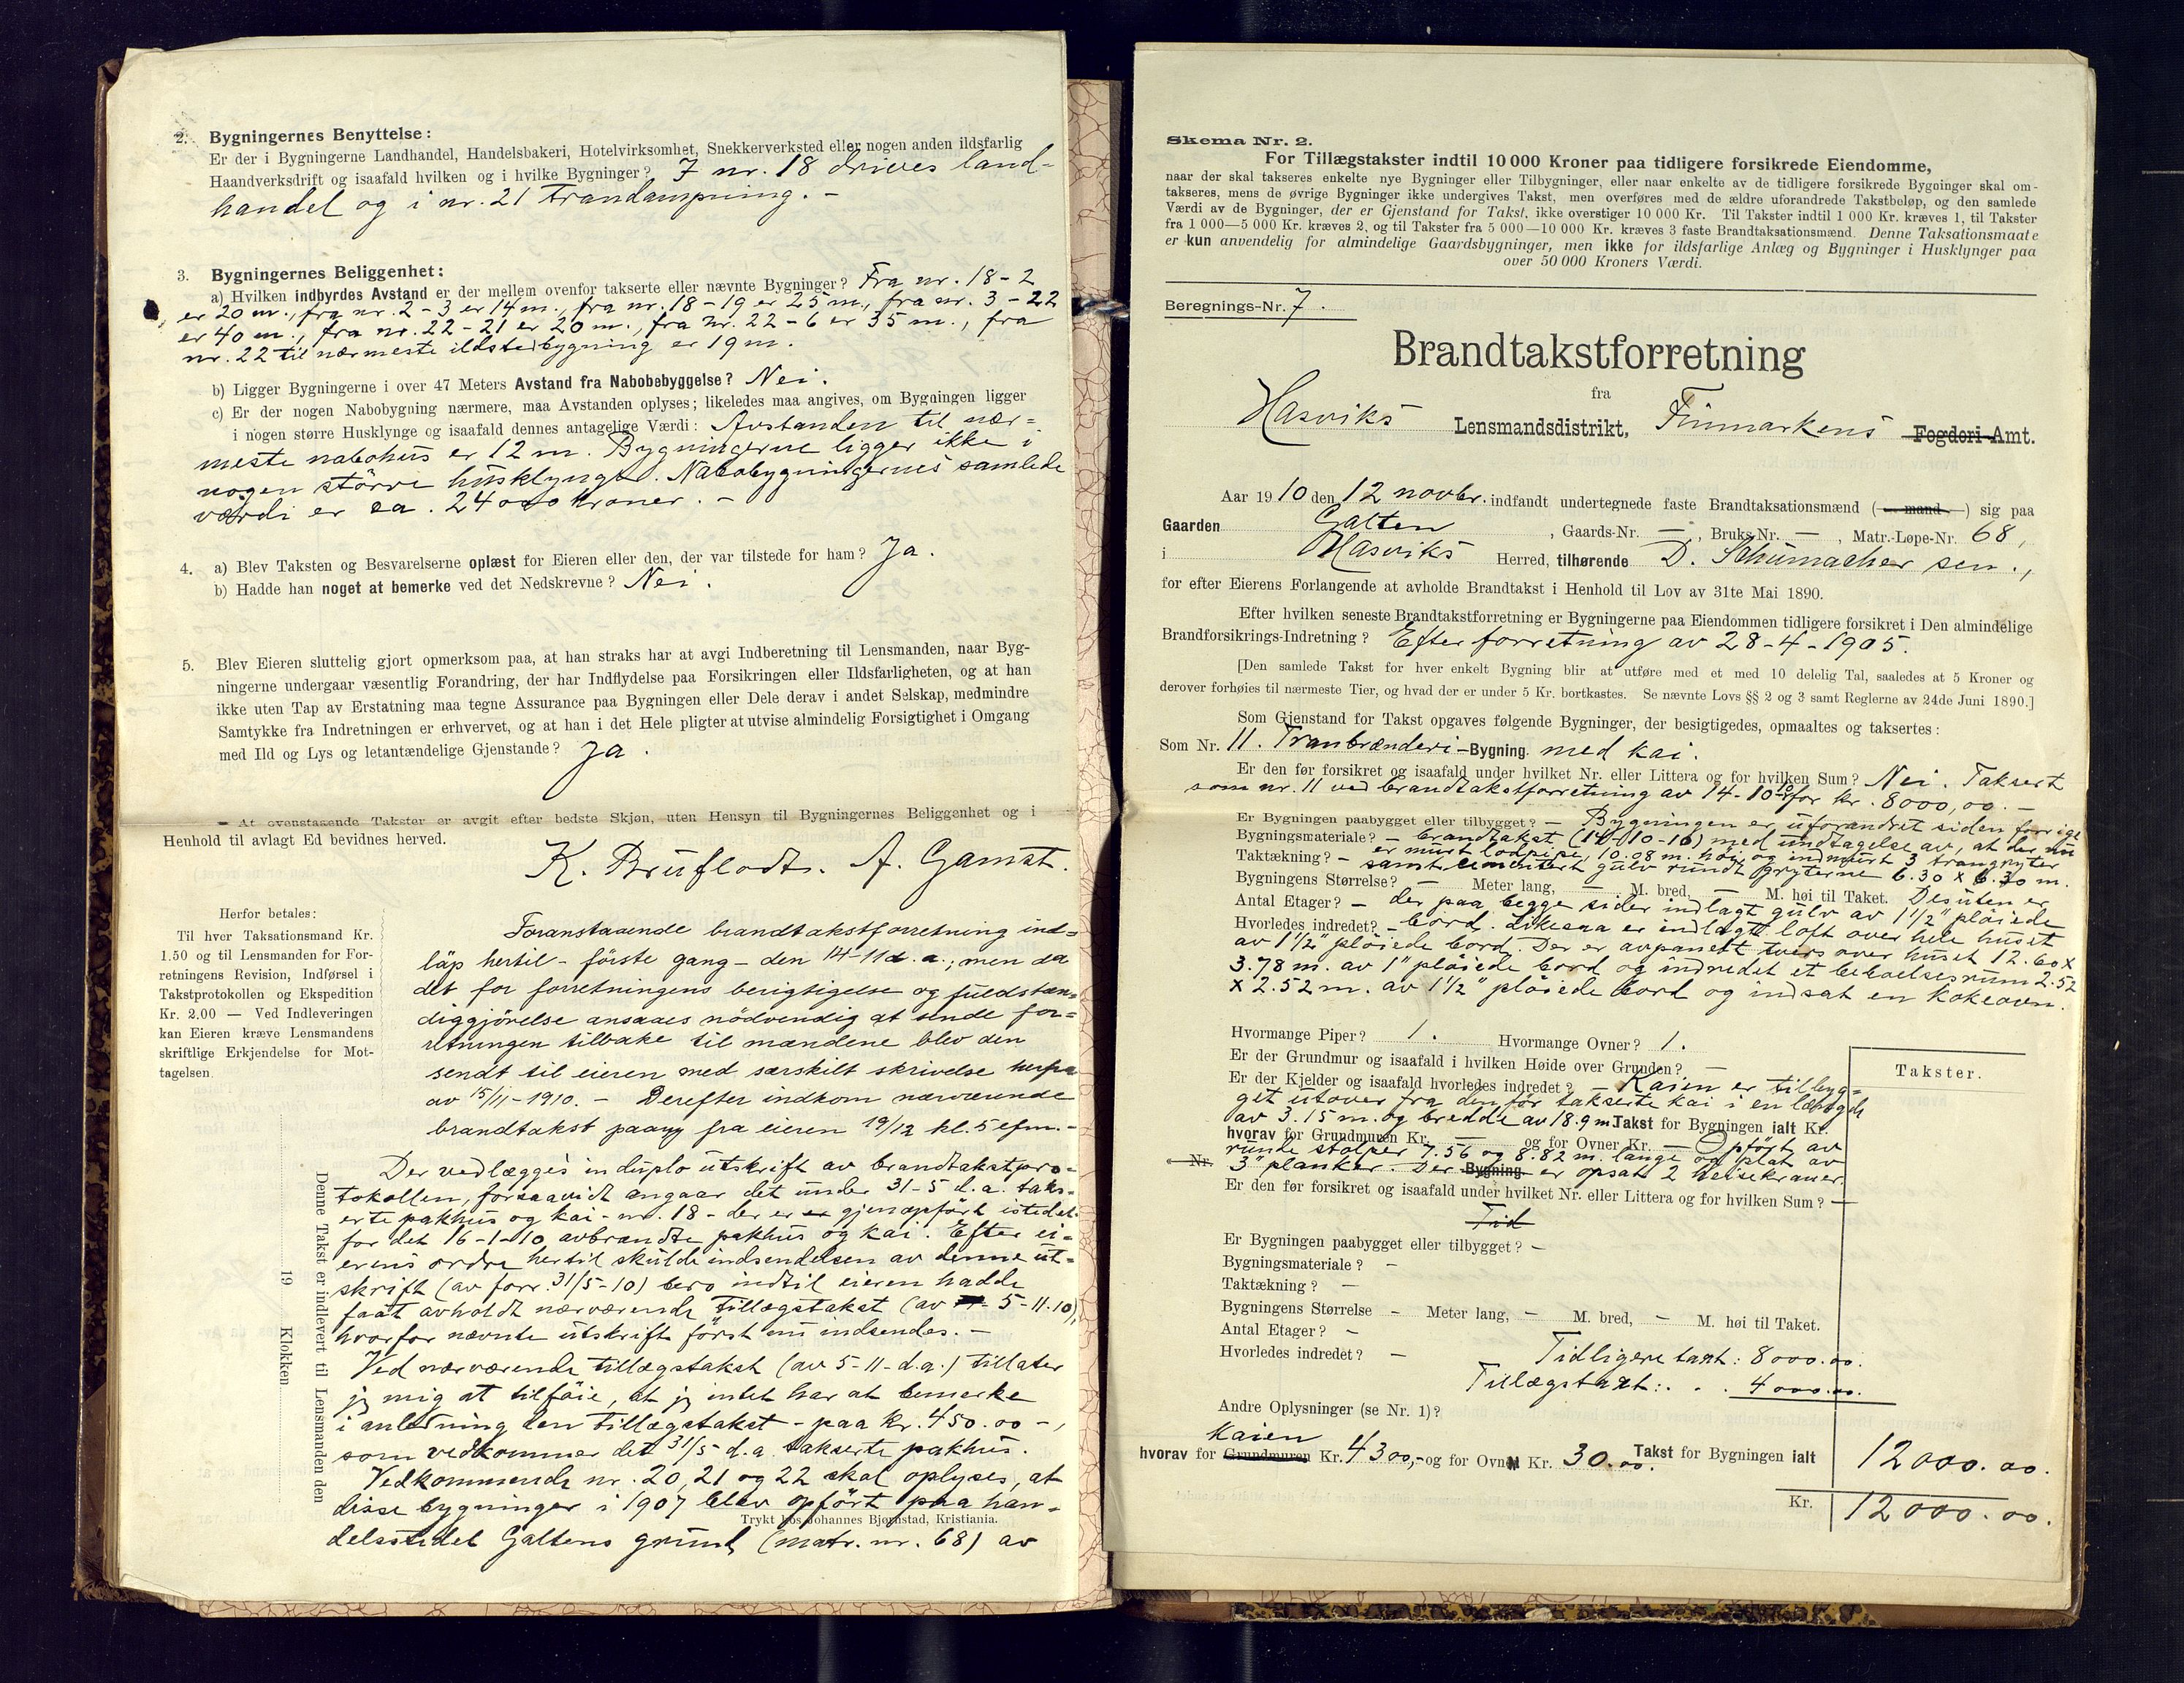 2. Bygningernes Benyttelse:
Er der i Bygningerne Landhandel, Handelsbakeri, Hotelvirksomhet, Snekkerverksted eller nogen anden ildsfarlig
Haandverksdrift og isaafald hvilken og i hvilke Bygninger? I nr. 18 drives land-
handel og i nr. 21 trandampning. -
3. Bygningernes Beliggenhet:
a) Hvilken indbyrdes Avstand er der mellem ovenfor takserte eller nævnte Bygninger? Fra nr. 18 - 2
er 20 m., fra nr. 2 - 3 er 14 m., fra nr. 18 - 19 er 25 m., fra nr. 3 - 22
er 40 m., fra nr. 22 - 21 er 20 m., fra nr. 22 - 6 er 35 m., fra
nr. 22 til nærmeste ildstedbygning er 19 m.
b) Ligger Bygningerne i over 47 Meters Avstand fra Nabobebyggelse? Nei.
c) Er der nogen Nabobygning nærmere, maa Avstanden oplyses; likeledes maa angives, om Bygningen ligger
i nogen større Husklynge og isaafald dennes antagelige Værdi: Avstanden til nær-
meste nabohus er 12 m. Bygningerne ligger ikke i
nogen större husklynge. Nabobygningernes samlede
værdi er ca. 24 000 kroner. -
4. a) Blev Taksten og Besvarelserne oplæst for Eieren eller den, der var tilstede for ham? Ja.
b) Hadde han noget at bemerke ved det Nedskrevne? Nei.
5. Blev Eieren sluttelig gjort opmerksom paa, at han straks har at avgi Indberetning til Lensmanden, naar Byg-
ningerne undergaar væsentlig Forandring, der har Indflydelse paa Forsikringen eller Ildsfarligheten, og at han
ikke uten Tap av Erstatning maa tegne Assurance paa Bygningen eller Dele derav i andet Selskap, medmindre
Samtykke fra Indretningen er erhvervet, og at han i det Hele pligter at utvise almindelig Forsigtighet i Omgang
med Ild og Lys og letantændelige Gjenstande? Ja.
At ovenstaaende Takster er avgit efter bedste Skjøn, uten Hensyn til Bygningernes Beliggenhet og i
Henhold til avlagt Ed bevidnes herved.
K. Bruflodt. A. Gamst.
Herfor betales:
Til hver Taksationsmand Kr.
1.50 og til Lensmanden for For-
retningens Revision, Indførsel i
Takstprotokollen og Ekspedition
Kr. 2.00 — Ved Indleveringen
kan Eieren kræve Lensmandens
skriftlige Erkjendelse for Mot-
tagelsen.
Foranstaaende brandtakstforretning ind-
löp hertil - förste gang - den 14-11 d. a.; men da
det for forretningens berigtigelse og fuldstæn-
diggjörelse ansaaes nödvendig at sende for-
retningen tilbake til mændene blev den
sendt til eieren med særskilt skrivelse herfra
av 15/11-1910. - Derefter indkom nærværende
brandtakst paany fra eieren 19/12 kl. 5 efm. -
Der vedlægges in duplo utskrift av brandtakstpro-
tokollen, forsaavidt angaar det under 31-5 d.a. taks-
erte pakhus og kai - nr. 18 - der er gjenopfört istedet
for det 16-1-10 avbrændte pakhus og kai. Efter ei-
erens ordre hertil skulde indsendelsen av denne ut-
skrift (av forr. 31/5-10) bero indtil eieren hadde
faat avholdt nærværende tillægstakst (av 5-11-10),
hvorfor nævnte utskrift först nu indsendes. -
Ved nærværende tillægstakst (av 5-11-d.a.) tillater
jeg mig at tilföie, at jeg intet har at bemerke
i anledning den tillægstakst - paa kr. 450.00 -,
som vedkommer det 31/5 d.a. takserte pakhus.
Vedkommende nr. 20, 21 og 22 skal oplyses, at
disse bygninger i 1907 blev opfört paa han-
delsstedet Galtens grund (matr. nr. 68) av
Trykt hos Johannes Bjørnstad, Kristiania.
Denne Takst er indlevert til Lensmanden den
19 Klokken
Skema Nr. 2.
For Tillægstakster indtil 10 000 Kroner paa tidligere forsikrede Eiendomme,
naar der skal takseres enkelte nye Bygninger eller Tilbygninger, eller naar enkelte av de tidligere forsikrede Bygninger skal om-
takseres, mens de øvrige Bygninger ikke undergives Takst, men overføres med de ældre uforandrede Takstbeløp, og den samlede
Værdi av de Bygninger, der er Gjenstand for Takst, ikke overstiger 10 000 Kr. Til Takster indtil 1 000 Kr. kræves 1, til Takster
fra 1 000—5 000 Kr. kræves 2, og til Takster fra 5 000—10 000 Kr. kræves 3 faste Brandtaksationsmænd. Denne Taksationsmaate
er kun anvendelig for almindelige Gaardsbygninger, men ikke for ildsfarlige Anlæg og Bygninger i Husklynger paa
over 50 000 Kroners Værdi.
Beregnings-Nr. 7.
Brandtakstforretning
fra
Hasviks Lensmandsdistrikt, Finmarkens Fogderi-Amt.
Aar 1910 den 12 novbr. indfandt undertegnede faste Brandtaksationsmænd (—mand—) sig paa
Gaarden Galten, Gaards-Nr. —, Bruks-Nr. —, Matr.-Løpe-Nr. 68,
i Hasviks Herred, tilhørende D. Schumacher sen.,
for efter Eierens Forlangende at avholde Brandtakst i Henhold til Lov av 31te Mai 1890.
Efter hvilken seneste Brandtakstforretning er Bygningerne paa Eiendommen tidligere forsikret i Den almindelige
Brandforsikrings-Indretning? Efter forretning av 28-4-1905.
[Den samlede Takst for hver enkelt Bygning blir at utføre med et med 10 delelig Tal, saaledes at 5 Kroner og
derover forhøies til nærmeste Tier, og hvad der er under 5 Kr. bortkastes. Se nævnte Lovs §§ 2 og 3 samt Reglerne av 24de Juni 1890.]
Som Gjenstand for Takst opgaves følgende Bygninger, der besigtigedes, opmaaltes og taksertes:
Som Nr. 11. Tranbrænderi-Bygning med kai.
Er den før forsikret og isaafald under hvilket Nr. eller Littera og for hvilken Sum? Nei. Taksert
som nr. 11 ved brandtakstforretning av 14-10-10 for kr. 8000,00. -
Er Bygningen paabygget eller tilbygget? - Bygningen er uforandret siden forrige
Bygningsmateriale? - brandtakst (14-10-10) med undtagelse av, at der nu
Taktækning? - er murt lodpipe, 10.08 m. höi, og indmurt 3 trangryter
samt cementert gulv rundt gryterne 6.30 x 6.30 m.
Bygningens Størrelse? — Meter lang, — M. bred, — M. høi til Taket. Desuten er
Antal Etager? - der paa begge sider indlagt gulv av 1 1/2" plöiede
Hvorledes indret? - bord. Likesaa er indlagt loft over hele huset
av 1 1/2" plöiede bord. Der er avpanelt tvers over huset 12.60 x
3.78 m. av 1" plöiede bord og indredet et beboelsesrum 2.52
x 2.52 m. av 1 1/2" plöiede bord og indsat en kokeovn.
Hvormange Piper? 1. Hvormange Ovner? 1.
Er der Grundmur og isaafald i hvilken Høide over Grunden? —
Takster.
Er der Kjelder og isaafald hvorledes indredet? - Kaien er tilbyg-
get utover fra den för takserte kai i en længde
av 3.15 m. og bredde av 18.9 m. Takst for Bygningen ialt Kr.
hvorav for Grundmuren Kr. — og for Ovner Kr. — Opfört av
runde stolper 7.56 og 8.82 m. lange og plat av
Nr. 3" planker. Der Bygning er opsat 2 heisekraner.
Er den før forsikret og isaafald under hvilket Nr. eller Littera og for hvilken Sum? —
Tid
Er Bygningen paabygget eller tilbygget? -
Bygningsmateriale? -
Taktækning? -
Bygningens Størrelse - Meter lang, - M. bred, - M. høi til Taket.
Antal Etager? -
Hvorledes indredet? - Tidligere taxt: 8000.00.
Tillægstaxt: . . 4000.00.
Andre Oplysninger (se Nr. 1)?
Kaien
hvorav for Grundmuren Kr. 4300,- og for Ovn Kr. 30.00. Takst for Bygningen ialt 12000.00.
Kr. 12000.00.